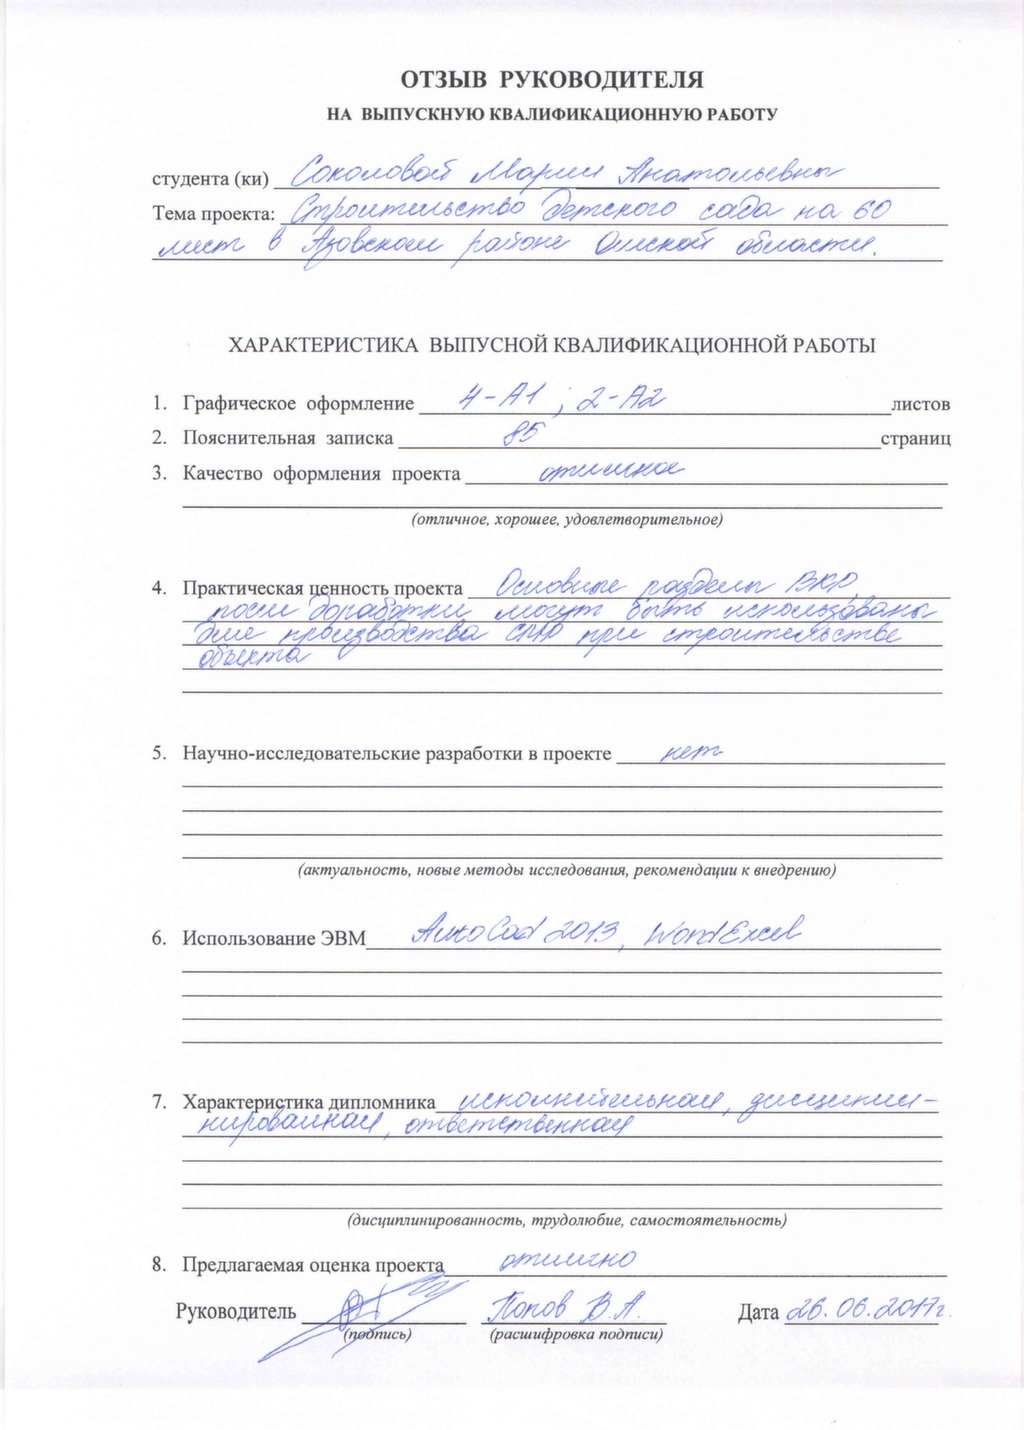 ОТЗЫВ РУКОВОДИТЕЛЯ
НА ВЫПУСКНУЮ КВАЛИФИКАЦИОННУЮ РАБОТУ
студента (ки) Соколовой Марии Анатольевны
Тема проекта: Строительство детского сада на 60
мест в Азовском районе Омской области.
ХАРАКТЕРИСТИКА ВЫПУСНОЙ КВАЛИФИКАЦИОННОЙ РАБОТЫ
1. Графическое оформление 4-А1 ; 2-А2 листов
2. Пояснительная записка 85 страниц
3. Качество оформления проекта отличное
(отличное, хорошее, удовлетворительное)
4. Практическая ценность проекта Основные разделы ВКР,
после доработки, могут быть использованы
для производства СМР при строительстве
объекта
5. Научно-исследовательские разработки в проекте нет
(актуальность, новые методы исследования, рекомендации к внедрению)
6. Использование ЭВМ AutoCad 2013, Word Excel
7. Характеристика дипломника исполнительная, дисципли-
нированная, ответственная
(дисциплинированность, трудолюбие, самостоятельность)
8. Предлагаемая оценка проекта отлично
Руководитель Попов В.А. Дата 26.06.2017г.
(подпись) (расшифровка подписи)